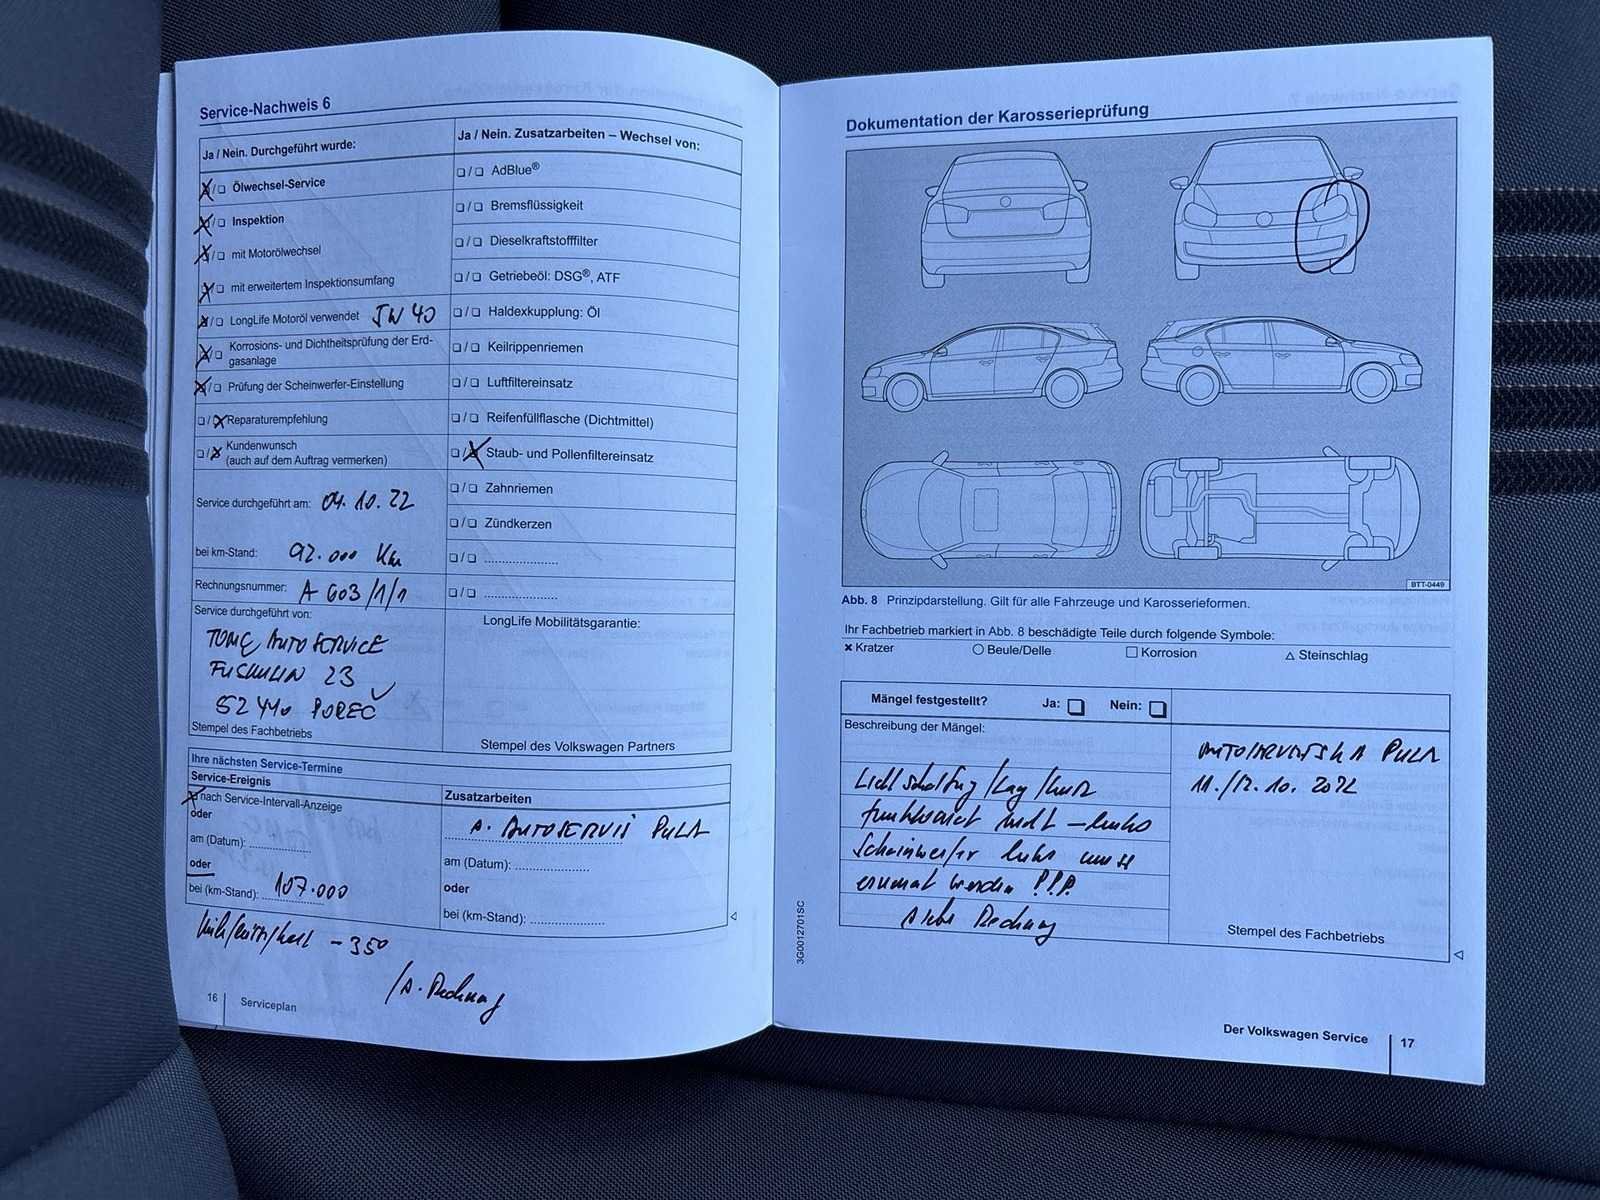 Service-Nachweis 6
Ja / Nein. Durchgeführt wurde:
❏/❏ Ölwechsel-Service
❏/❏ Inspektion
❏/❏ mit Motorölwechsel
❏/❏ mit erweitertem Inspektionsumfang
❏/❏ LongLife Motoröl verwendet 5W40
❏/❏ Korrosions- und Dichtheitsprüfung der Erd-
gasanlage
❏/❏ Prüfung der Scheinwerfer-Einstellung
❏/❏ Reparaturempfehlung
❏/❏ Kundenwunsch
(auch auf dem Auftrag vermerken)
Service durchgeführt am: 04.10.22
bei km-Stand: 92.000 Km
Rechnungsnummer: A 603/1/1
Service durchgeführt von:
TOMČ AUTOSERVICE
FUŠKULIN 23
52440 POREČ
Stempel des Fachbetriebs
Ja / Nein. Zusatzarbeiten – Wechsel von:
❏/❏ AdBlue®
❏/❏ Bremsflüssigkeit
❏/❏ Dieselkraftstofffilter
❏/❏ Getriebeöl: DSG®, ATF
❏/❏ Haldexkupplung: Öl
❏/❏ Keilrippenriemen
❏/❏ Luftfiltereinsatz
❏/❏ Reifenfüllflasche (Dichtmittel)
❏/❏ Staub- und Pollenfiltereinsatz
❏/❏ Zahnriemen
❏/❏ Zündkerzen
❏/❏ ....................
❏/❏ ....................
LongLife Mobilitätsgarantie:
Stempel des Volkswagen Partners
Ihre nächsten Service-Termine
Service-Ereignis
❏ nach Service-Intervall-Anzeige
oder
am (Datum): ....................
oder
bei (km-Stand): 107.000
Zusatzarbeiten
AUTOSERVIS PULA
am (Datum): ....................
oder
bei (km-Stand): ....................
– 350
Rechnung
16 Serviceplan
Dokumentation der Karosserieprüfung
BTT-0449
Abb. 8 Prinzipdarstellung. Gilt für alle Fahrzeuge und Karosserieformen.
Ihr Fachbetrieb markiert in Abb. 8 beschädigte Teile durch folgende Symbole:
✗ Kratzer ○ Beule/Delle □ Korrosion △ Steinschlag
Mängel festgestellt? Ja: ❏ Nein: ❏
Beschreibung der Mängel:
Lichtschaltung/Lang/kurz
funktioniert nicht – links
Scheinwerfer links muss
erneuert werden !!!
siehe Rechnung
PULA
11./12.10.2022
Stempel des Fachbetriebs
3G0012701SC
Der Volkswagen Service 17